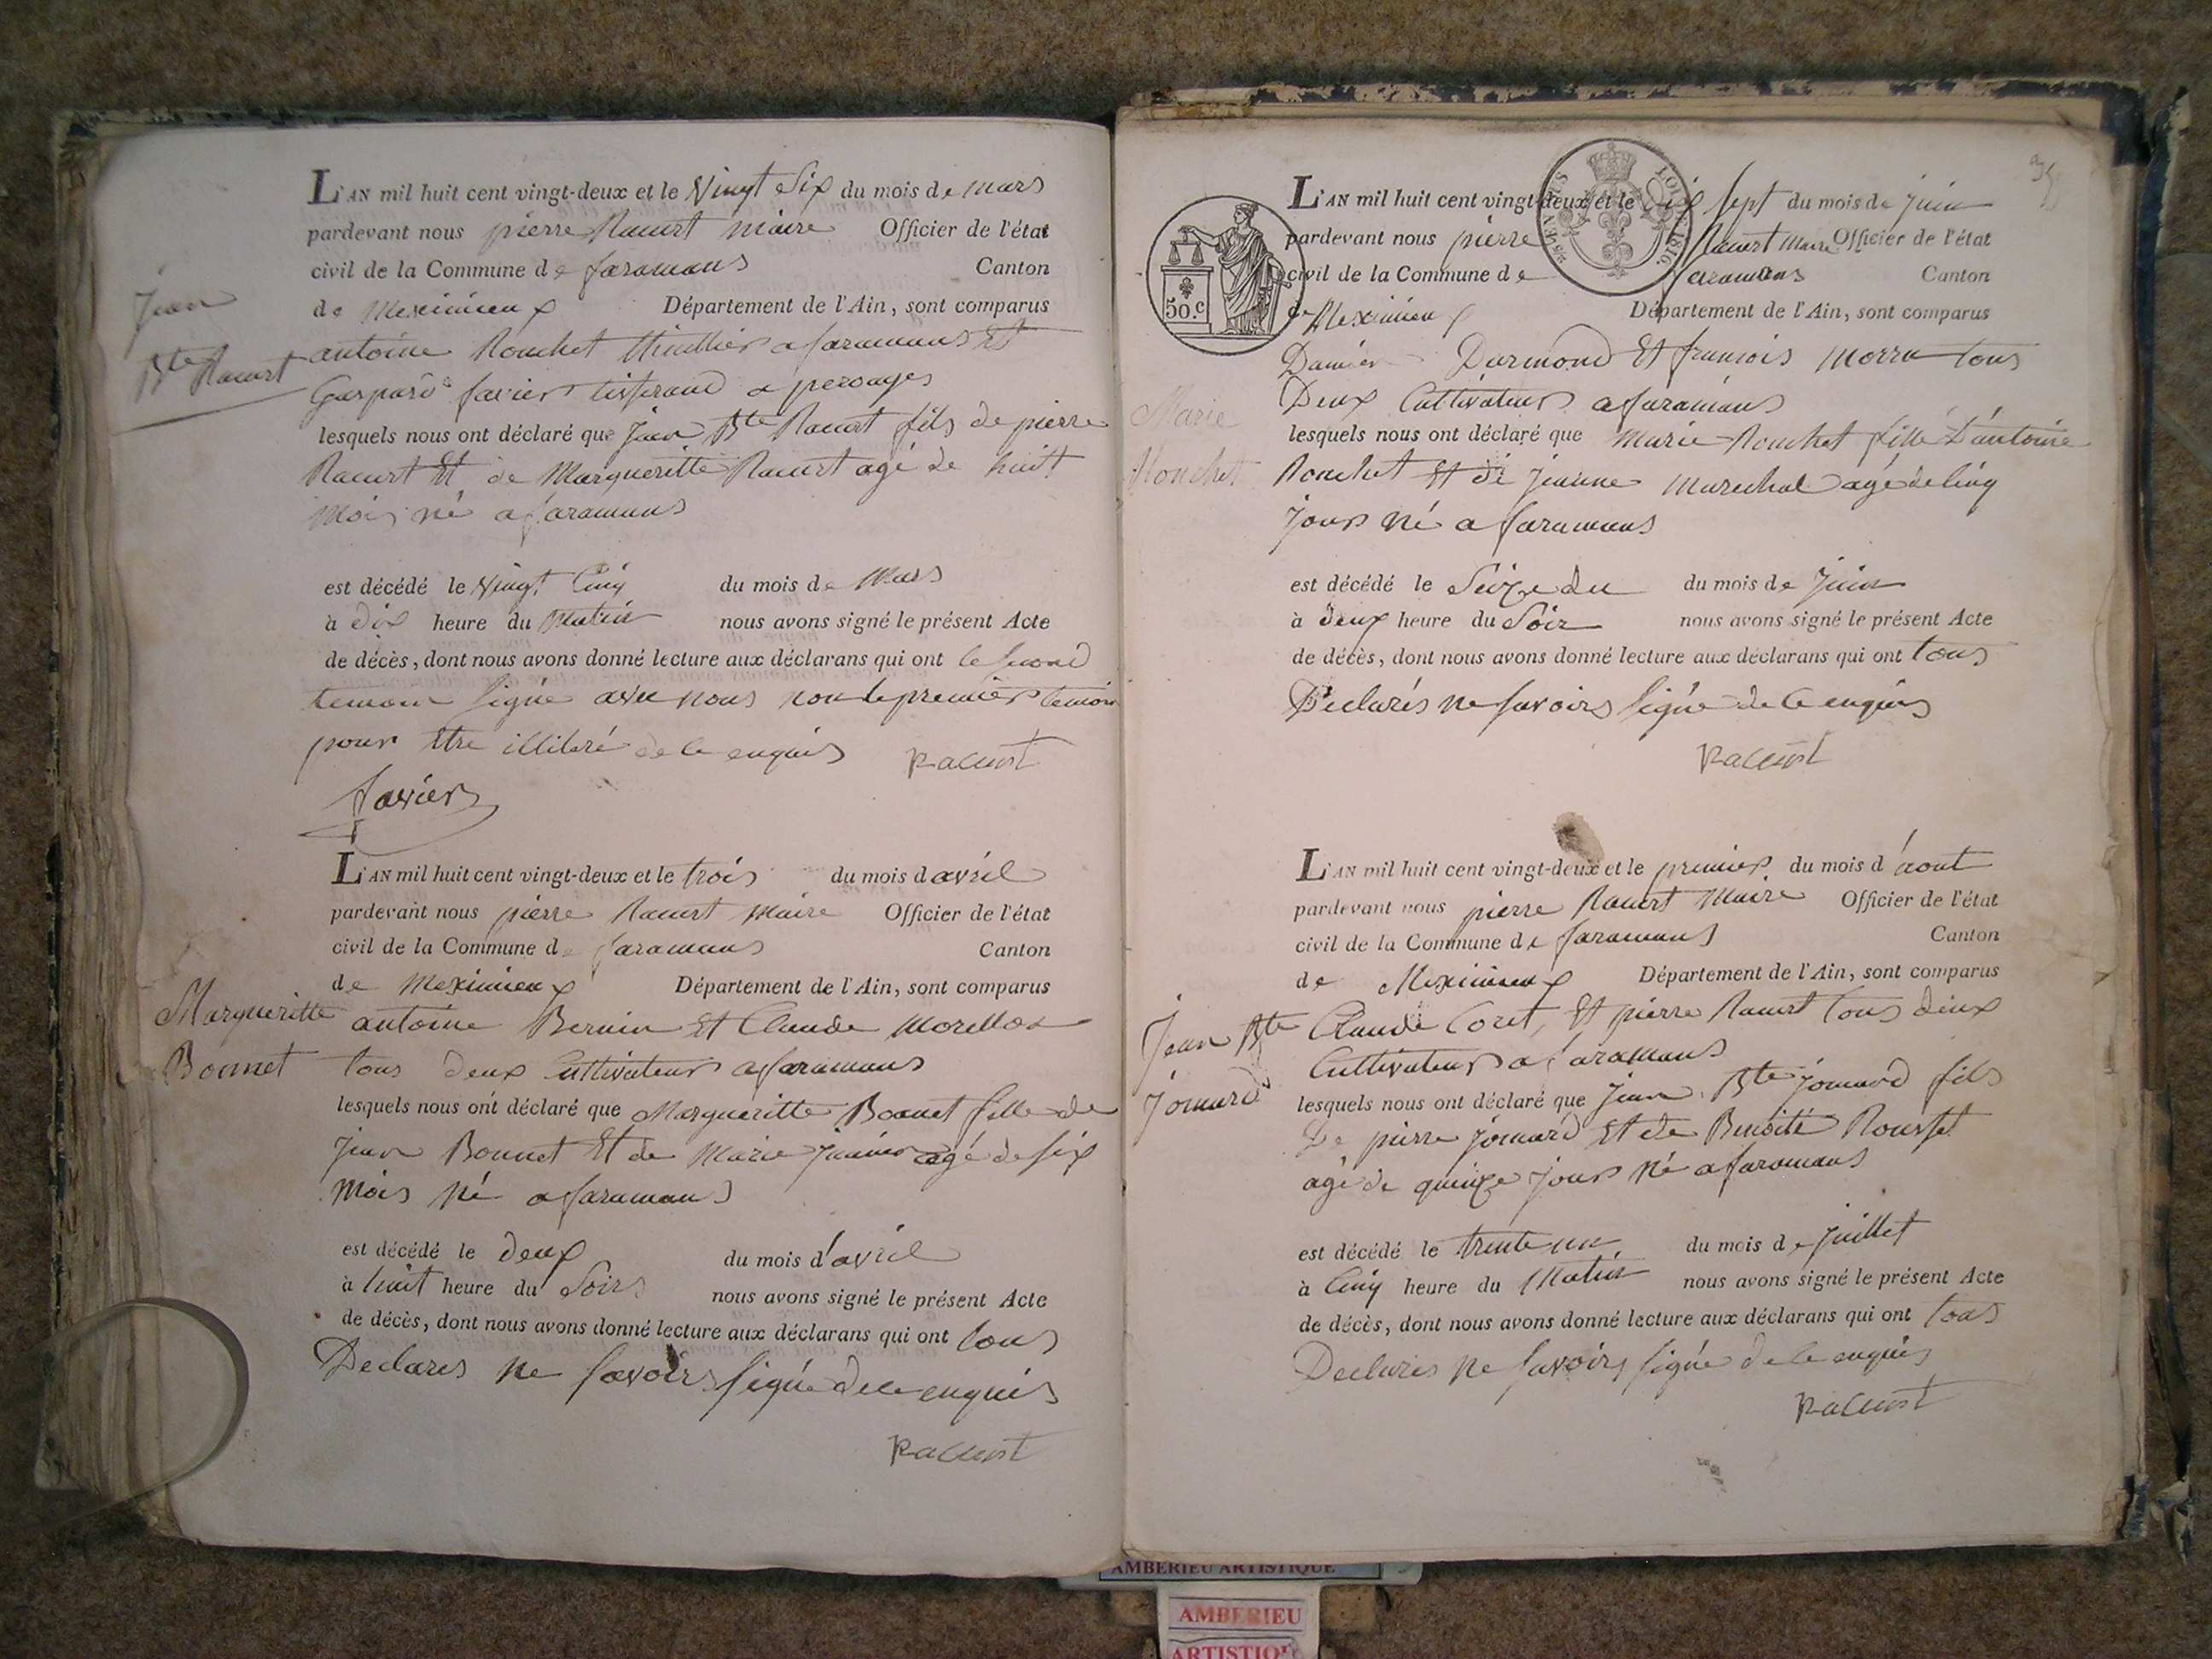 L'AN mil huit cent vingt-deux et le Vingt Six du mois de mars
pardevant nous pierre Racurt maire Officier de l'état
civil de la Commune de faramans Canton
de Meximieux Département de l'Ain, sont comparus
Jean
Bte Racurt
antoine Rouchet thuillier a faramans Et
Gaspard favier tisserand a perouges
lesquels nous ont déclaré que jean Bte Racurt fils de pierre
Racurt Et de Margueritte Racurt agé de huit
mois né a faramans
est décédé le Vingt Cinq du mois de Mars
à dix heure du Matin nous avons signé le présent Acte
de décès, dont nous avons donné lecture aux déclarans qui ont le second
temoin signé avec nous non le premier temoin
pour etre illiteré de ce enquis Racurt
favier
L'AN mil huit cent vingt-deux et le trois du mois d avril
pardevant nous pierre Racurt maire Officier de l'état
civil de la Commune de faramans Canton
de Meximieux Département de l'Ain, sont comparus
Margueritte
Bonnet
antoine Bernin Et Claude Morellon
tous deux Cultivateurs a faramans
lesquels nous ont déclaré que Margueritte Bonnet fille de
jean Bonnet Et de Marie agé de six
mois né a faramans
est décédé le deux du mois d'avril
à huit heure du Soirs nous avons signé le présent Acte
de décès, dont nous avons donné lecture aux déclarans qui ont tous
Declarés ne savoirs signé de ce enquis
Racurt
LOI DE 1816.
50.c
L'AN mil huit cent vingt-deux et le dix sept du mois de juin
pardevant nous pierre Racurt Maire Officier de l'état
civil de la Commune de faramans Canton
de Meximieux Département de l'Ain, sont comparus
Damien Darmond Et francois morra tous
Deux Cultivateurs a faramans
Marie
Rouchet
lesquels nous ont déclaré que Marie Rouchet fille d'antoine
Rouchet Et de jeanne marechal agé de cinq
jours né a faramans
est décédé le Seize du du mois de juin
à deux heure du Soir nous avons signé le présent Acte
de décès, dont nous avons donné lecture aux déclarans qui ont tous
Declarés ne savoirs signé de ce enquis
Racurt
L'AN mil huit cent vingt-deux et le premier du mois d'aout
pardevant nous pierre Racurt Maire Officier de l'état
civil de la Commune de faramans Canton
de Meximieux Département de l'Ain, sont comparus
Jean Bte
jomard
Claude Coret, Et pierre Racurt tous deux
Cultivateurs a faramans
lesquels nous ont déclaré que jean Bte jomard fils
De pierre jomard Et de Benoite Rousset
agé de quinze jours né a faramans
est décédé le trente un du mois de juillet
à Cinq heure du Matin nous avons signé le présent Acte
de décès, dont nous avons donné lecture aux déclarans qui ont tous
Declarés ne savoirs signé de ce enquis
Racurt
AMBERIEU ARTISTIQUE
AMBERIEU
ARTISTIQUE